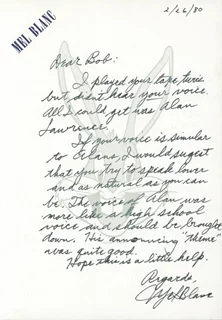 MEL BLANC
2/26/80
Dear Bob:
I played your tape, twice
but didn't hear your voice.
All I could get was Alan
Lawrence.
If your voice is similar
to Elans, I would sugest
that you try to speak lower
and as natural as you can
be. The voice of Alan was
more like a high school
voice and should be brought
down. His announcing "theme"
was quite good.
Hope this is a little help.
Regards,
Mel Blanc